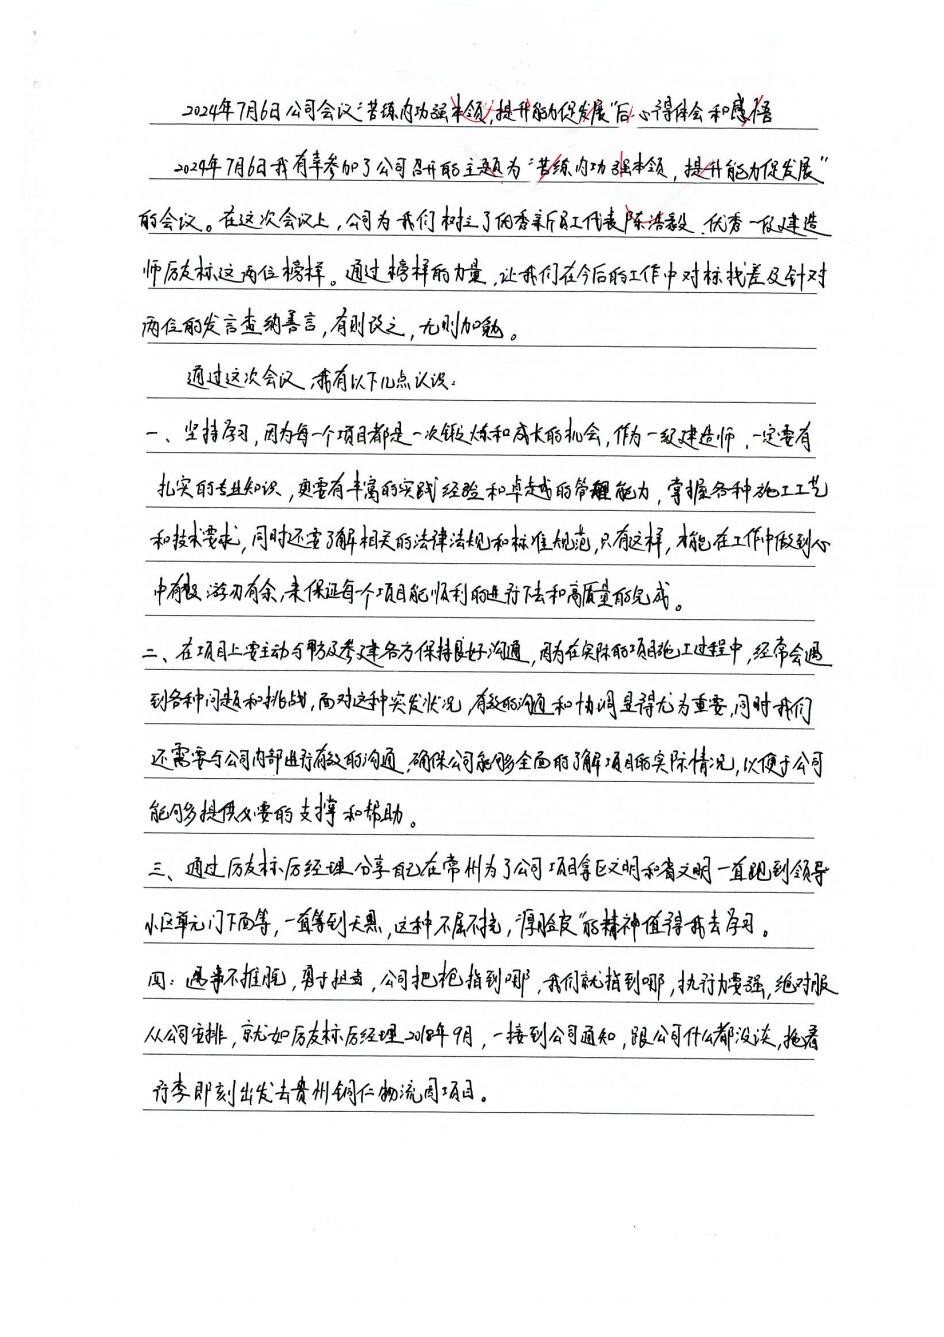 2024年7月6日公司会议“苦练内功强本领，提升能力促发展”后心得体会和感悟
2024年7月6日我有幸参加了公司召开的主题为“苦练内功强本领，提升能力促发展”
的会议。在这次会议上，公司为我们树立了优秀新员工代表陈浩毅、优秀一级建造
师厉友标这两位榜样。通过榜样的力量，让我们在今后的工作中对标找差及针对
两位的发言查纳善言，有则改之，无则加勉。
通过这次会议，我有以下几点认识：
一、坚持学习，因为每一个项目都是一次锻炼和成长的机会，作为一级建造师，一定要有
扎实的专业知识，更要有丰富的实践经验和卓越的管理能力，掌握各种施工工艺
和技术要求，同时还要了解相关的法律法规和标准规范，只有这样，才能在工作中做到心
中有数，游刃有余，来保证每个项目能顺利的进行下去和高质量的完成。
二、在项目上要主动与甲方及参建各方保持良好沟通，因为在实际的项目施工过程中，经常会遇
到各种问题和挑战，面对这种突发状况，有效的沟通和协调显得尤为重要，同时我们
还需要与公司内部进行有效的沟通，确保公司能够全面的了解项目的实际情况，以便于公司
能够多提供必要的支撑和帮助。
三、通过厉友标厉经理分享自己在常州为了公司项目拿区文明和省文明一直跑到领导
小区单元门下面等，一直等到天黑，这种不屈不挠，“厚脸皮”的精神值得我去学习。
四：遇事不推脱，勇于担当，公司把枪指到哪，我们就指到哪，执行力要强，绝对服
从公司安排，就如厉友标厉经理2018年9月，一接到公司通知，跟公司什么都没谈，拖着
行李即刻出发去贵州铜仁物流园项目。